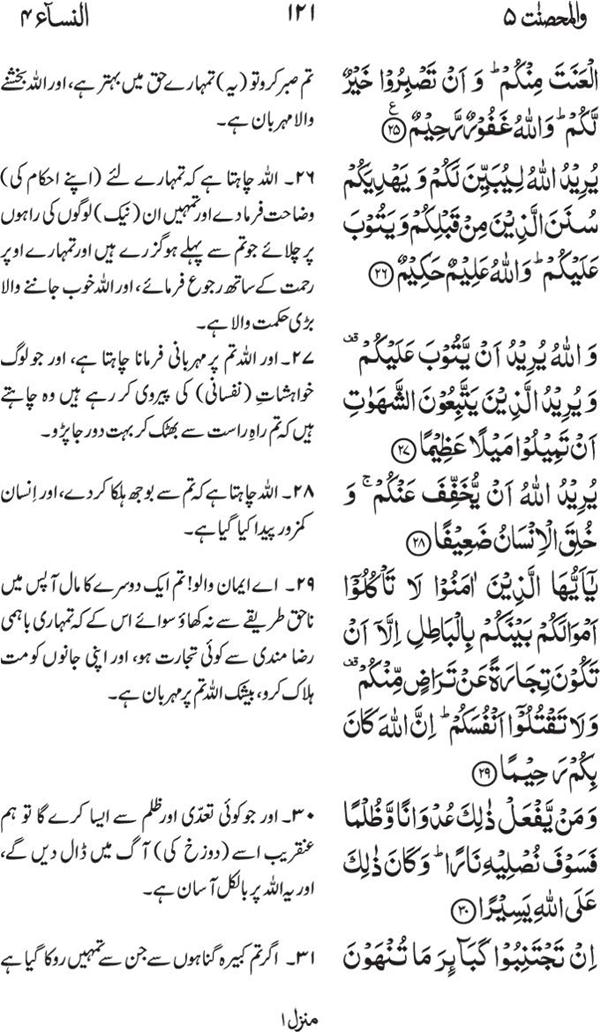 والمحصنٰت ۵
۱۲۱
النسآء ۴
الْعَنَتَ مِنْكُمْ ؕ وَ اَنْ تَصْبِرُوْا خَیْرٌ
لَّكُمْ ؕ وَاللّٰهُ غَفُوْرٌ رَّحِیْمٌ ﴿۲۵﴾ ع
یُرِیْدُ اللّٰهُ لِیُبَیِّنَ لَكُمْ وَ یَهْدِیَكُمْ
سُنَنَ الَّذِیْنَ مِنْ قَبْلِكُمْ وَ یَتُوْبَ
عَلَیْكُمْ ؕ وَاللّٰهُ عَلِیْمٌ حَكِیْمٌ ﴿۲۶﴾
وَ اللّٰهُ یُرِیْدُ اَنْ یَّتُوْبَ عَلَیْكُمْ ۟
وَ یُرِیْدُ الَّذِیْنَ یَتَّبِعُوْنَ الشَّهَوٰتِ
اَنْ تَمِیْلُوْا مَیْلًا عَظِیْمًا ﴿۲۷﴾
یُرِیْدُ اللّٰهُ اَنْ یُّخَفِّفَ عَنْكُمْ ۚ وَ
خُلِقَ الْاِنْسَانُ ضَعِیْفًا ﴿۲۸﴾
یٰۤاَیُّهَا الَّذِیْنَ اٰمَنُوْا لَا تَاْكُلُوْۤا
اَمْوَالَكُمْ بَیْنَكُمْ بِالْبَاطِلِ اِلَّاۤ اَنْ
تَكُوْنَ تِجَارَةً عَنْ تَرَاضٍ مِّنْكُمْ ۟
وَ لَا تَقْتُلُوْۤا اَنْفُسَكُمْ ؕ اِنَّ اللّٰهَ كَانَ
بِكُمْ رَحِیْمًا ﴿۲۹﴾
وَ مَنْ یَّفْعَلْ ذٰلِكَ عُدْوَانًا وَّ ظُلْمًا
فَسَوْفَ نُصْلِیْهِ نَارًا ؕ وَ كَانَ ذٰلِكَ
عَلَی اللّٰهِ یَسِیْرًا ﴿۳۰﴾
اِنْ تَجْتَنِبُوْا كَبَآىِٕرَ مَا تُنْهَوْنَ
تم صبر کرو تو (یہ) تمہارے حق میں بہتر ہے، اور اللہ بخشنے
والا مہربان ہے۔
۲۶۔ اللہ چاہتا ہے کہ تمہارے لئے (اپنے احکام کی)
وضاحت فرما دے اور تمہیں ان (نیک) لوگوں کی راہوں
پر چلائے جو تم سے پہلے ہو گزرے ہیں اور تمہارے اوپر
رحمت کے ساتھ رجوع فرمائے، اور اللہ خوب جاننے والا
بڑی حکمت والا ہے۔
۲۷۔ اور اللہ تم پر مہربانی فرمانا چاہتا ہے، اور جو لوگ
خواہشاتِ (نفسانی) کی پیروی کر رہے ہیں وہ چاہتے
ہیں کہ تم راہِ راست سے بھٹک کر بہت دور جا پڑو۔
۲۸۔ اللہ چاہتا ہے کہ تم سے بوجھ ہلکا کر دے، اور اِنسان
کمزور پیدا کیا گیا ہے۔
۲۹۔ اے ایمان والو! تم ایک دوسرے کا مال آپس میں
ناحق طریقے سے نہ کھاؤ سوائے اس کے کہ تمہاری باہمی
رضا مندی سے کوئی تجارت ہو، اور اپنی جانوں کو مت
ہلاک کرو، بیشک اللہ تم پر مہربان ہے۔
۳۰۔ اور جو کوئی تعدّی اور ظلم سے ایسا کرے گا تو ہم
عنقریب اسے (دوزخ کی) آگ میں ڈال دیں گے،
اور یہ اللہ پر بالکل آسان ہے۔
۳۱۔ اگر تم کبیرہ گناہوں سے جن سے تمہیں روکا گیا ہے
منزل ۱